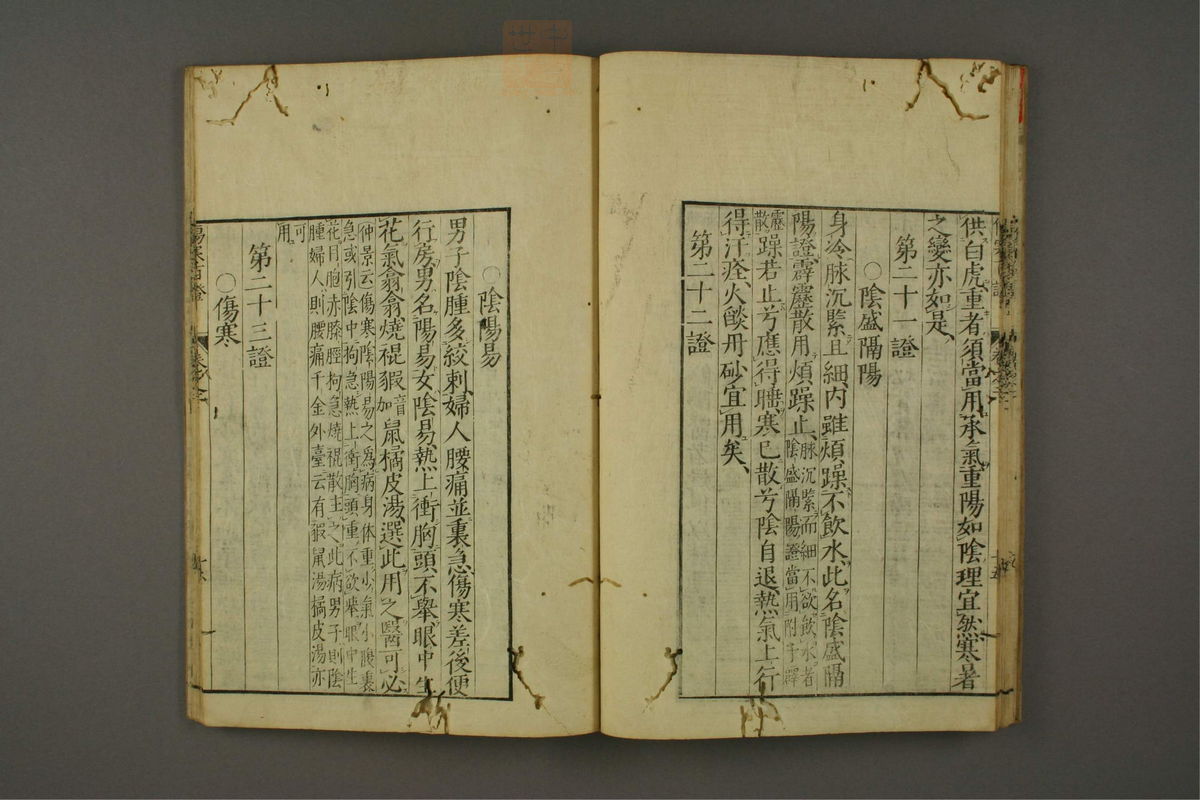 供白虎重者須當用承氣重陽如陰理宜然寒暑
之變亦如是
第二十一證
○陰盛隔陽
身冷脉沉緊且細内雖煩躁不飲水此名陰盛隔
陽證霹靂散用煩躁止脉沉緊而細不欲飲水者
陰盛隔陽證當用附子霹
靂
散躁若止兮應得睡寒已散兮陰自退熱氣上行
得汗痊火燄丹砂宜用矣
第二十二證
○陰陽易
男子陰腫多絞刺婦人腰痛並裏急傷寒差後便
行房男名陽易女陰易熱上衝胸頭不舉眼中生
花氣翕翕燒裩猳音
加鼠橘皮湯選此用之醫可必
仲景云傷寒陰陽易之為病身体重少氣小腹裏
急或引陰中拘急熱上衝胸頭重不欲舉眼中生
花目胞赤膝脛拘急燒裩散主之此病男子則陰
腫婦人則腰痛千金外臺云有猳鼠湯橘皮湯亦
可
用
第二十三證
○傷寒